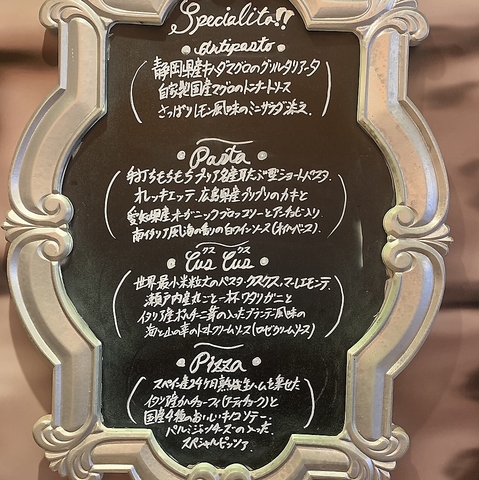 Specialità!!
Antipasto
静岡県産キハダマグロのグリルタリアータ
自家製国産マグロのトンナートソース
さっぱりレモン風味のミニサラダ添え
Pasta
手打ちもちもちプーリア名産耳たぶ型ショートパスタ
オレッキエッテ 広島県産プリプリのカキと
愛知県産オーガニックブロッコリーとアーチョビ入り
南イタリア風海の香りの白ワインソース(オイルベース)
クス クス
Cus Cus
世界最小米粒大のパスタ クスクス マーレエモンテ
瀬戸内産丸ごと一杯ワタリガニと
イタリア産ポルチーニ茸の入ったブランデー風味の
海と山の幸のトマトクリームソース(ロゼクリームソース)
Pizza
スペイン産24ヶ月熟成生ハムを乗せた
イタリア産カルチョーフィ(アーティチョーク)と
国産4種のおいしいキノコソテー
パルミジャンチーズの入った
スペシャルピッツァ